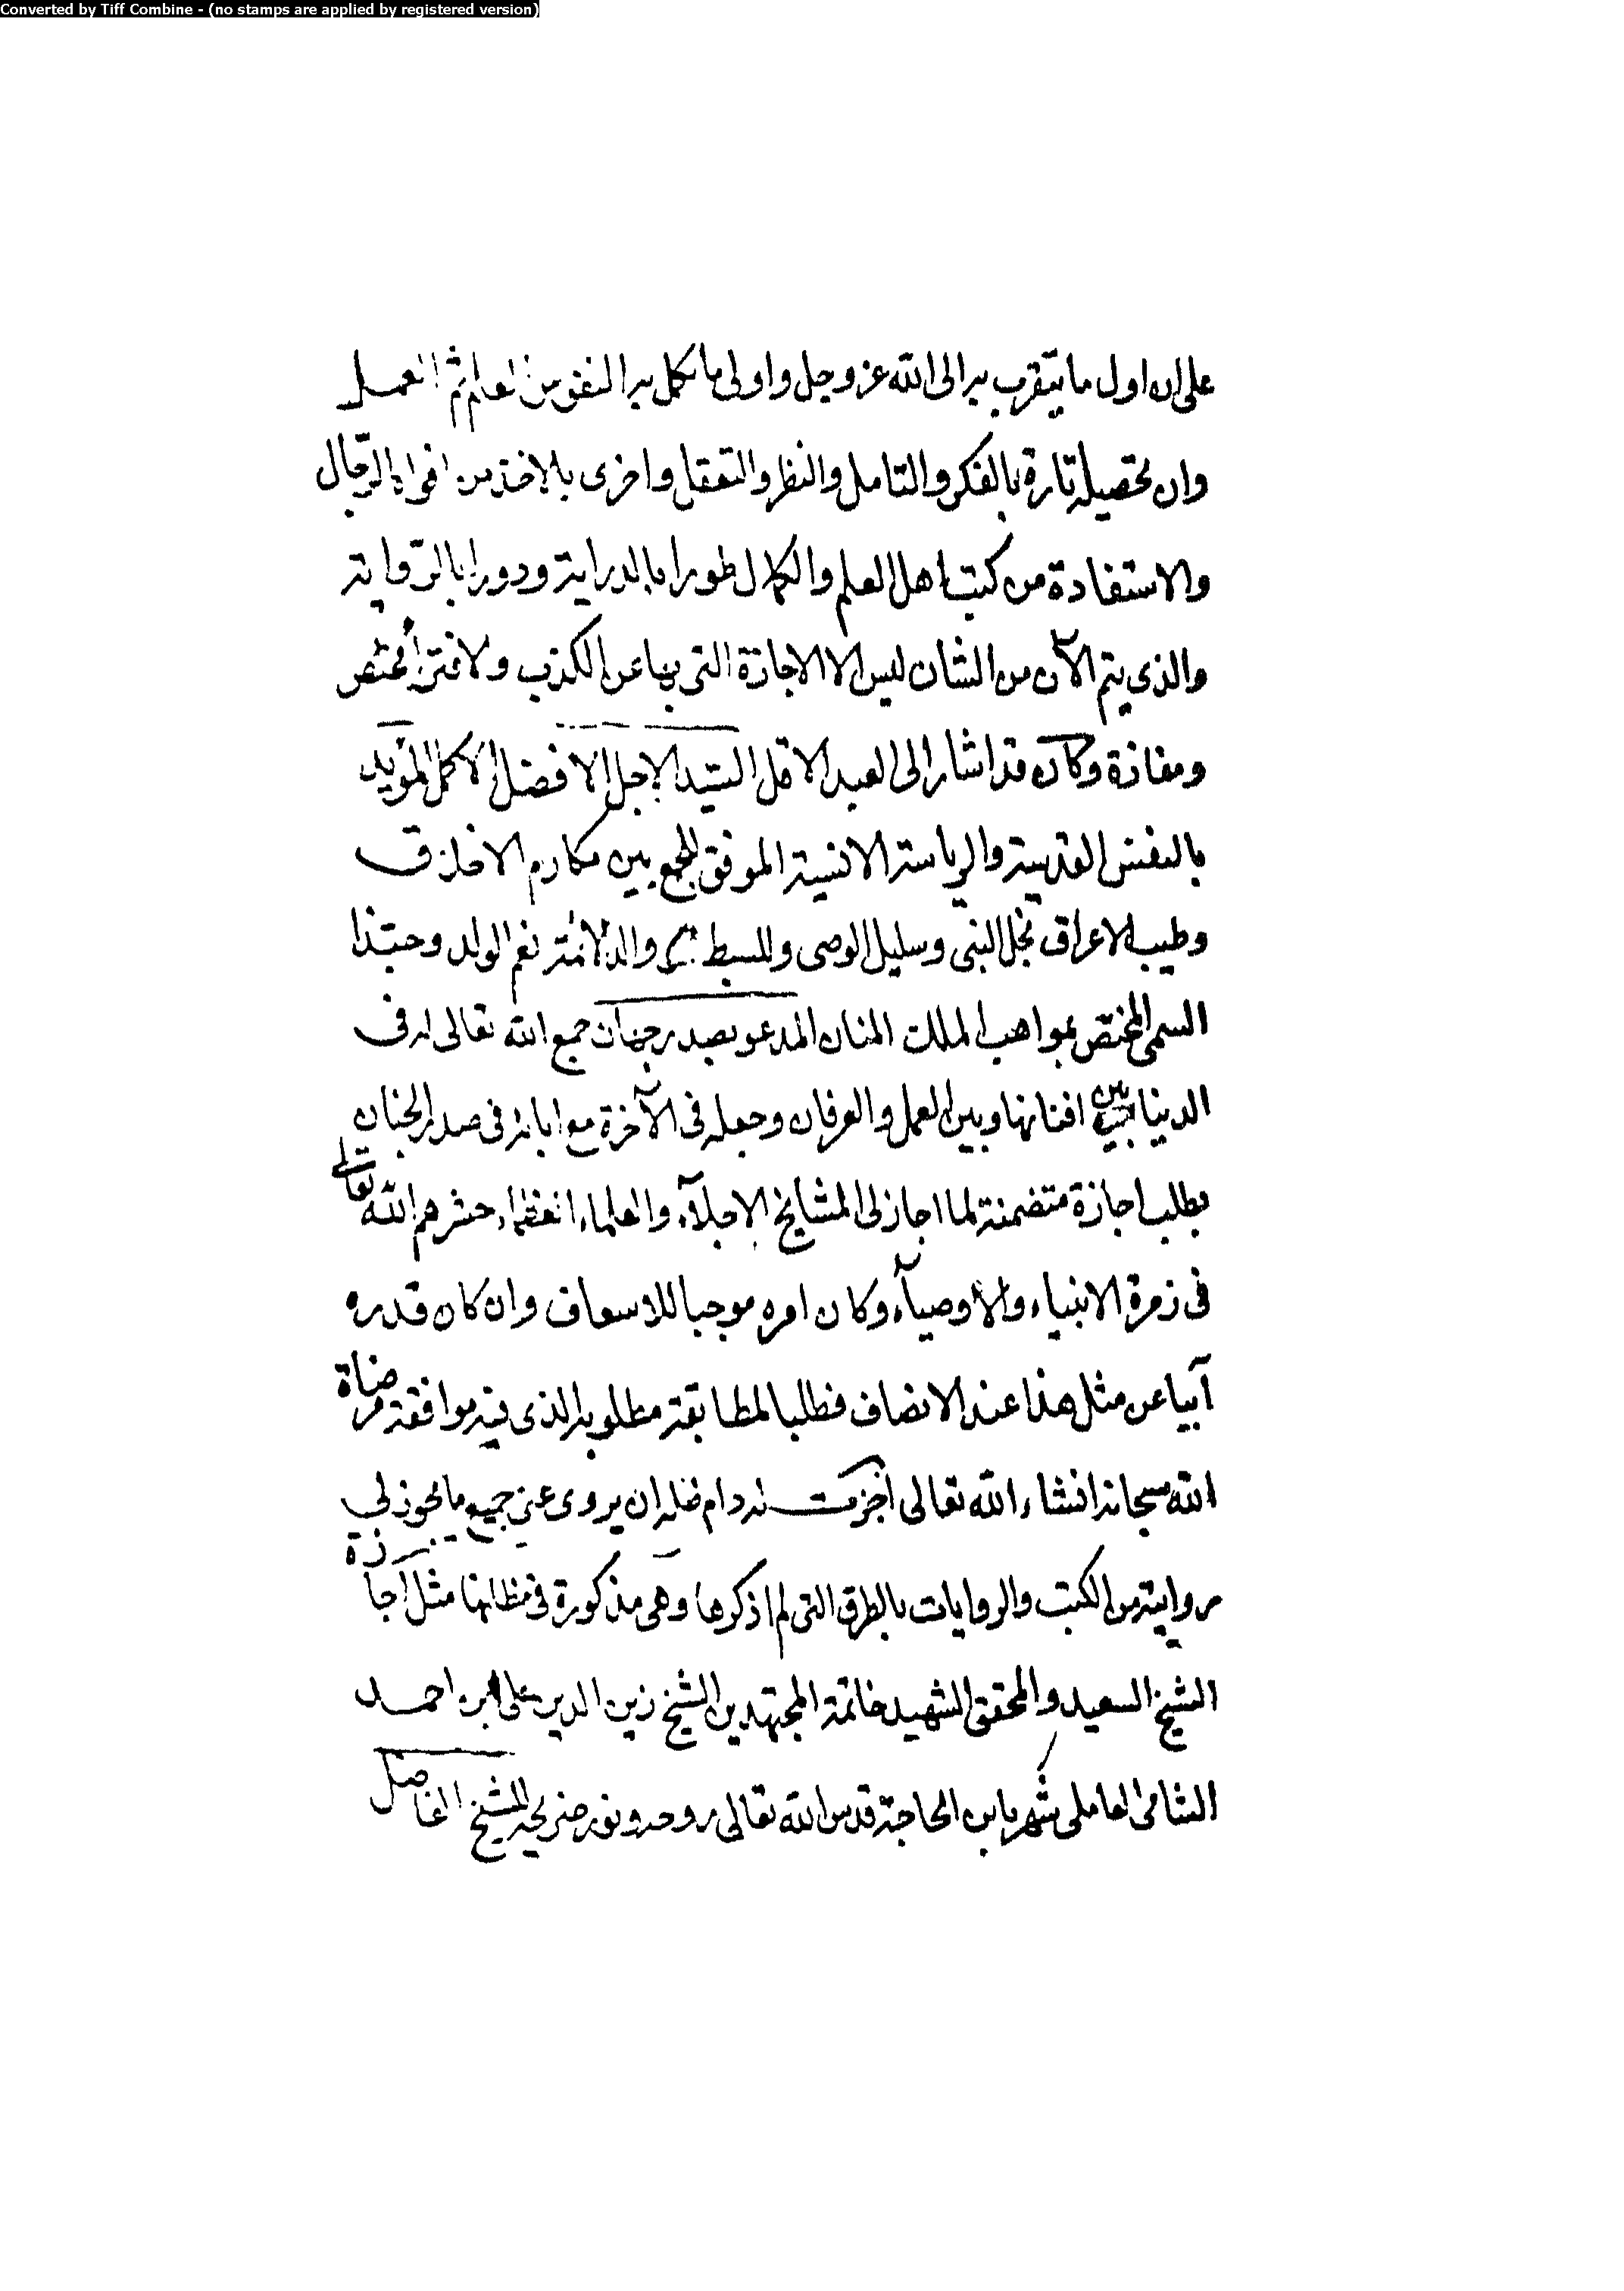 Converted by Tiff Combine - (no stamps are applied by registered version)
على ان اول ما يتقرب به الى الله عز وجل واولى ما تكمل به النفوس العلم ثم العمل
وان تحصيله تارة بالفكر والتامل والنظر والتعقل واخرى بالاخذ من افواه الرّجال
والاستفادة من كتب اهل العلم والكمال طورا بالدراية ودورا بالرّواية
والذى يتم الآن من الشان ليس الا الاجازة التى بها عن الكذب والافترا
ومفازة وكان قد اشار الى العبد الاقل السّيد الاجل الافضل الاكمل المؤيد
بالنفس القدسية والرياسة الانسية الموفق للجمع بين مكارم الاخلاق
وطيب الاعراق نجل النبى وسليل الوصى والسبط والد الائمة نعم الولد وحبّذا
السمى المختص بمواهب الملك المنان المدعو بصدر جهان جمع الله تعالى له فى
الدنيا بين افنانها وبين العمل والعرفان وجعله فى الآخرة مع ابائه فى صدر الجنان
بطلب اجازة متضمنة لما اجاز لى المشايخ الاجلآء والعلماء العظماء حشرهم الله تعالى
فى زمرة الانبياء والاوصيآء وكان امره موجبا للاسعاف وان كان قدره
آبيا عن مثل هذا عند الانصاف فطلبا لمطابقة مطلوبه الذى فيه موافقة مرضاة
الله سبحانه انشاء الله تعالى اجزت له دام ظله ان يروى عنى جميع ما يجوز لى
روايته من الكتب والروايات بالطرق التى لم اذكرها وهى مذكورة فى مظانها مثل اجازة
الشيخ السعيد والمحقق الشهيد خاتمة المجتهدين الشيخ زين الدين على ابن احمد
الشامى العاملى شهر بابن الحاجة قدس الله تعالى روحه ونور ضريحه للشيخ الفاضل